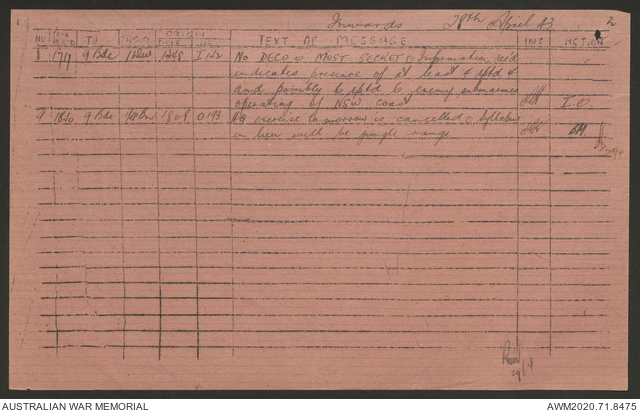 Inwards 28th April 43 2
No TO FROM TEXT OF MESSAGE INT. ACTION
8 1711 9 Bde 1245 No DECO o MOST SECRET o Information rec'd
indicates presence of at least 4 rptd 4
and possibly 6 rptd 6 enemy submarines
operating off NSW Coast I.O.
9 1820 9 Bde 1808 0193 exercise tomorrow is cancelled o Syllabus
in lieu will be jungle range
AUSTRALIAN WAR MEMORIAL AWM2020.71.8475